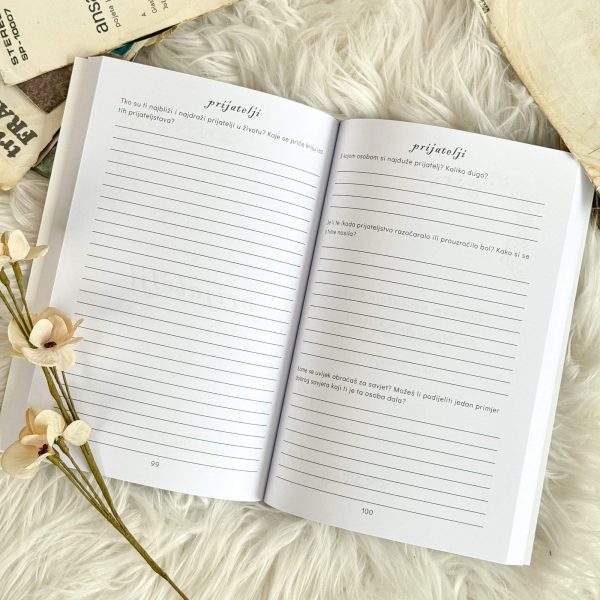 pojeta
ansa
STEREO
SP-10007
A
tri
FRA
prijatelji
Tko su ti najbliži i najdraži prijatelji u životu? Koje se priče kriju iza
tih prijateljstava?
99
prijatelji
kojom osobom si najduže prijatelj? Koliko dugo?
Je li te ikada prijateljstvo razočaralo ili prouzročilo bol? Kako si se
s time nosila?
se uvijek obraćaš za savjet? Možeš li podijeliti jedan primjer
dobrog savjeta koji ti je ta osoba dala?
100